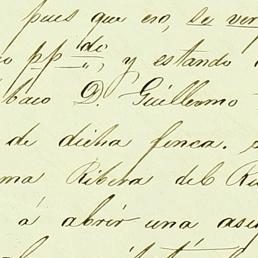 pues que eso, se ver
pp.do, y estando
baco D. Guillermo
de dicha finca.
ma Ribera del Ri
á abrir una ase